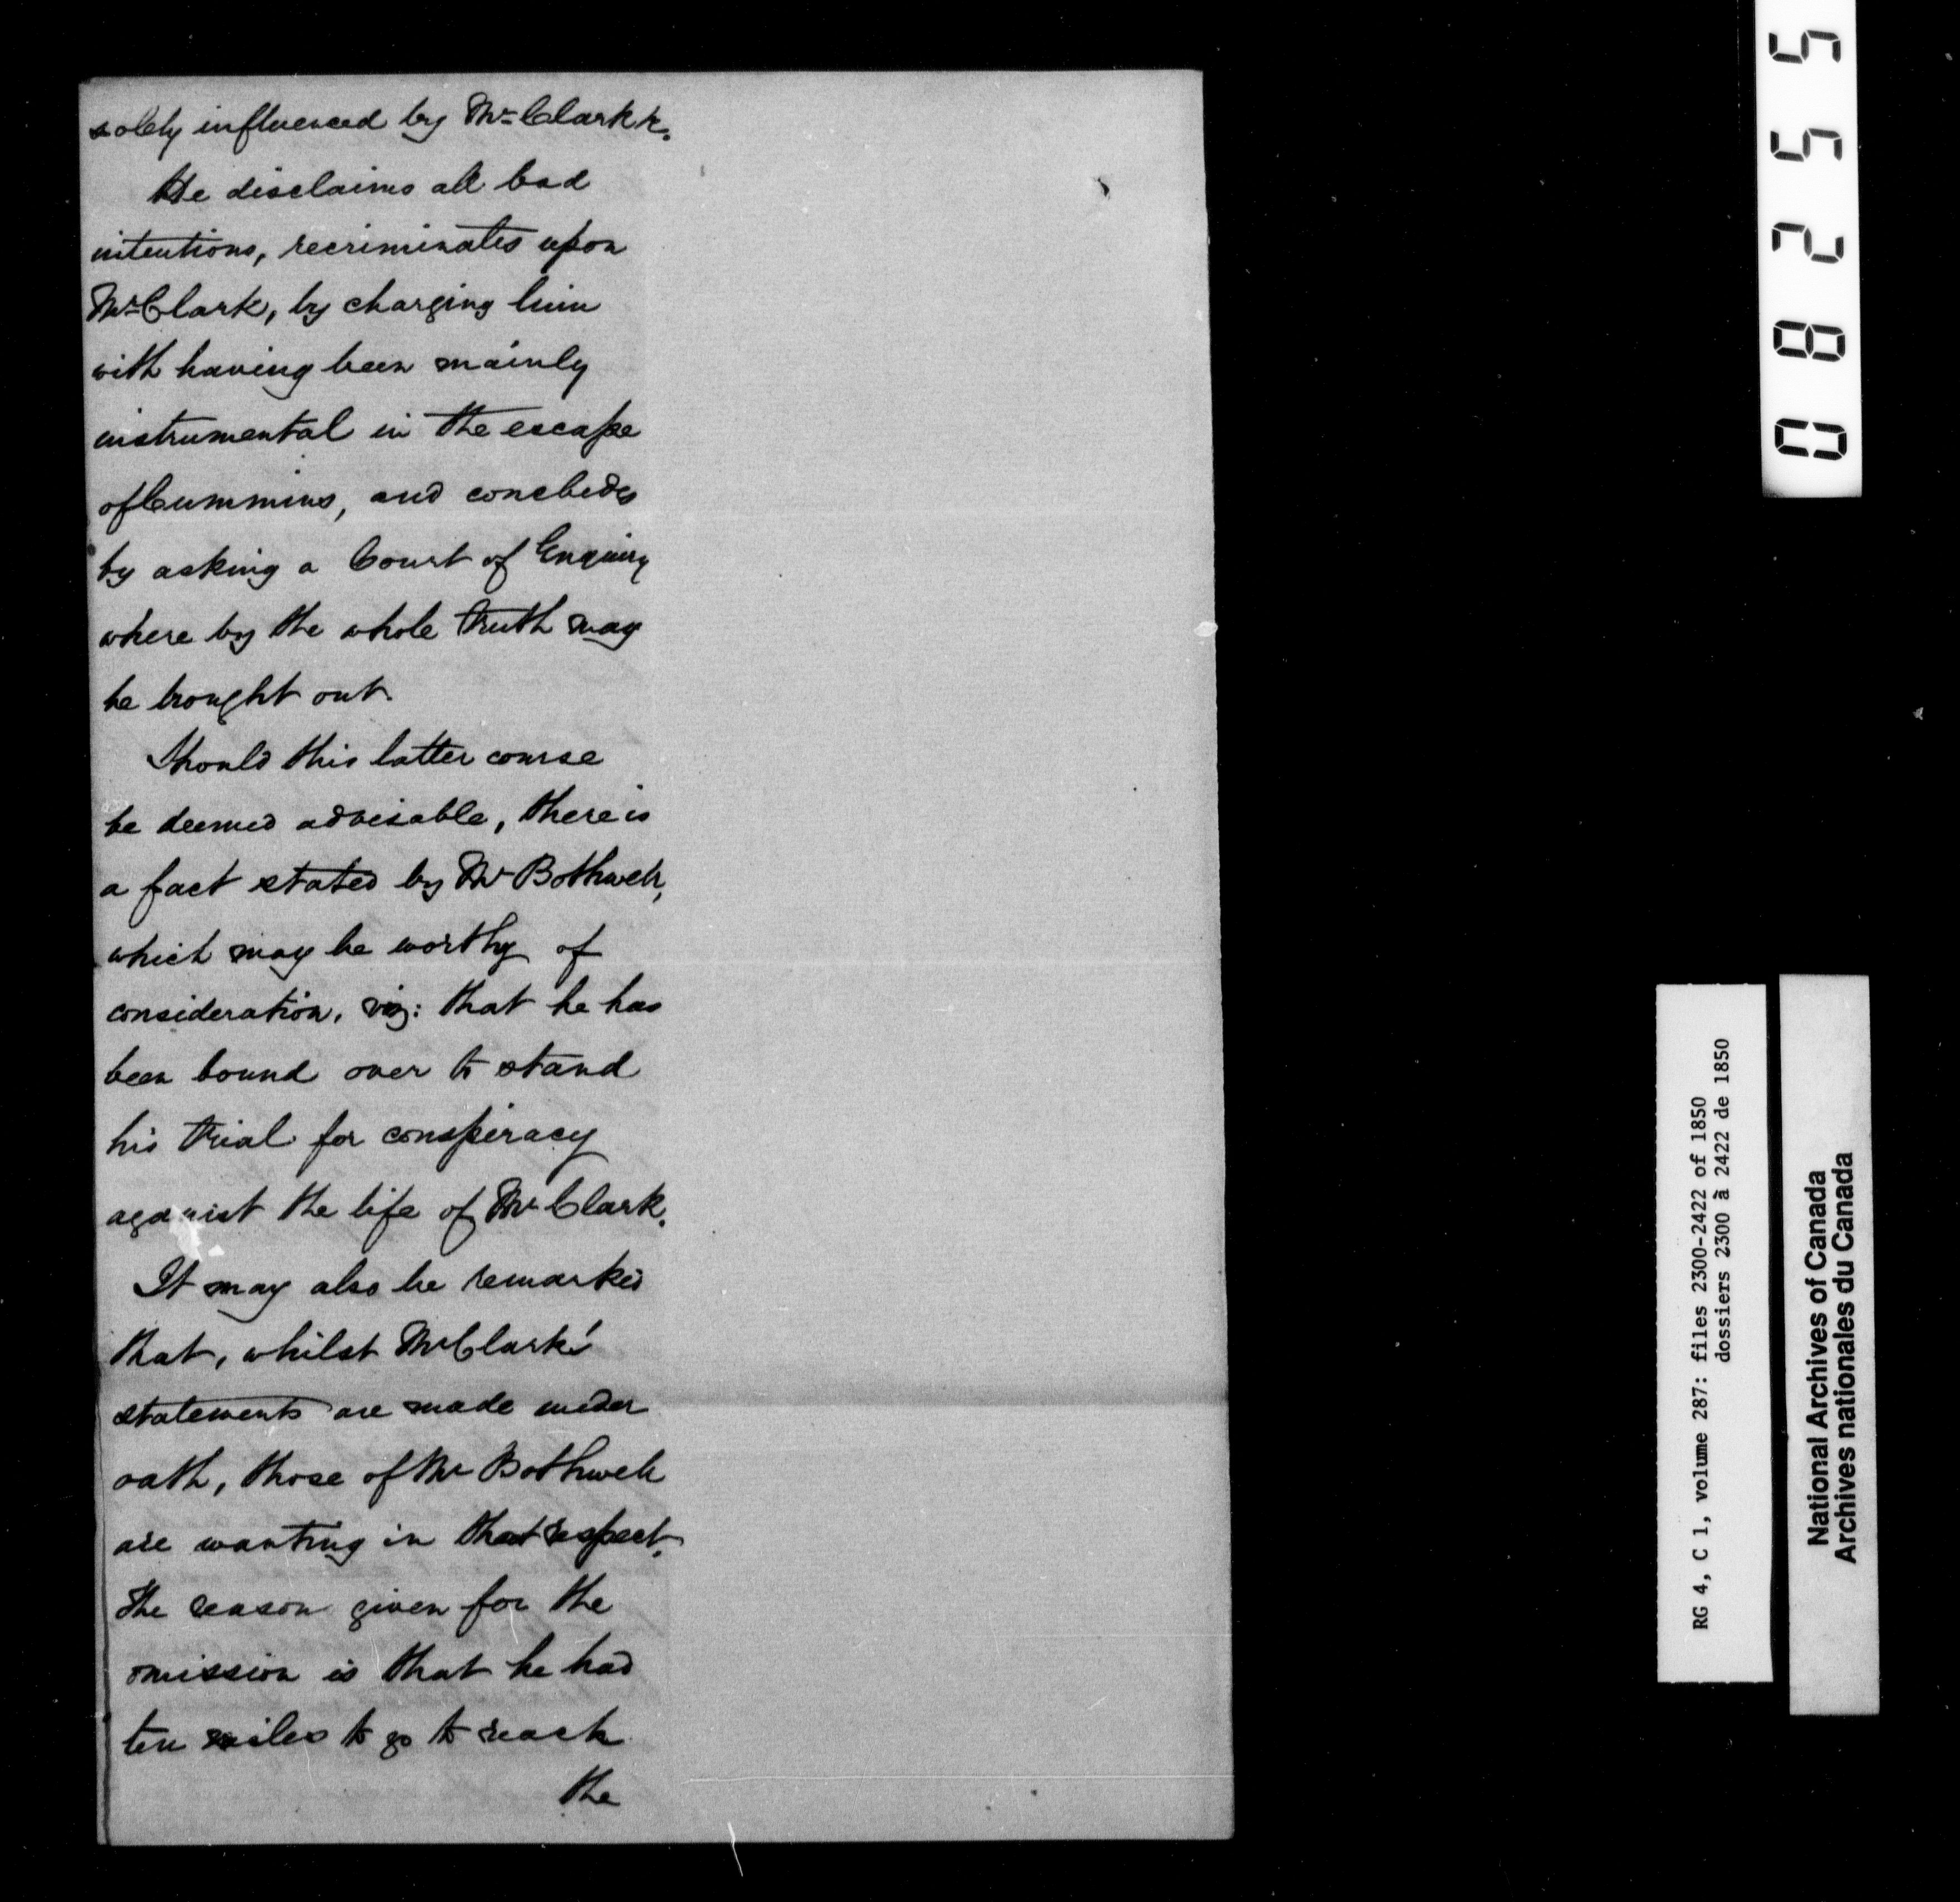 solely influenced by Mr Clark &c.
He disclaims all bad
intentions, recriminates upon
Mr Clark, by charging him
with having been mainly
instrumental in the escape
of Cummins, and concludes
by asking a Court of Enquiry
where by the whole truth may
be brought out.
Should this latter course
be deemed advisable, there is
a fact stated by Mr Bothwell,
which may be worthy of
consideration, viz: that he has
been bound over to stand
his trial for conspiracy
against the life of Mr Clark.
It may also be remarked
that, whilst Mr Clark's
statements are made under
oath, those of Mr Bothwell
are wanting in that respect.
The reason given for the
omission is that he had
ten miles to go to reach
the
08255
RG 4, C 1, volume 287: files 2300-2422 of 1850
dossiers 2300 à 2422 de 1850
National Archives of Canada
Archives nationales du Canada